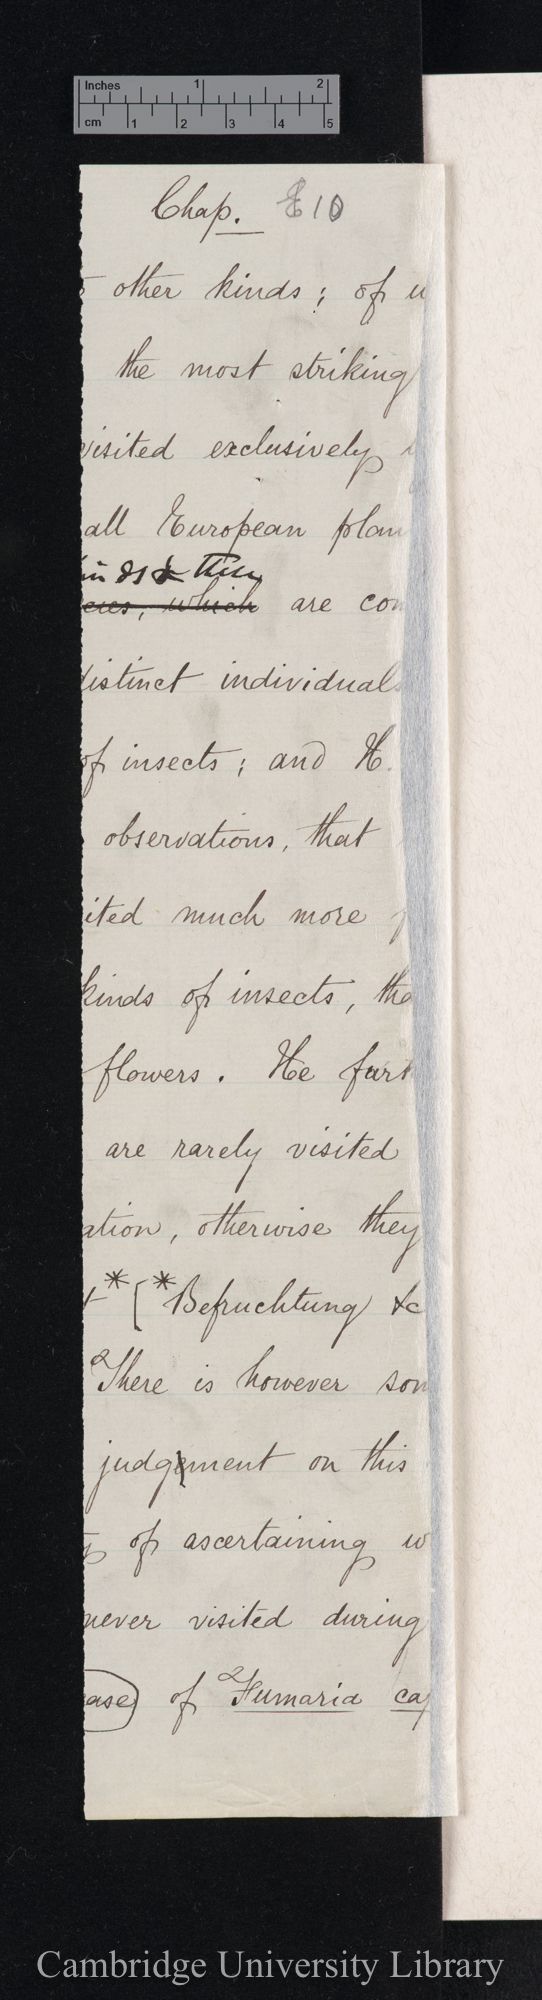 Inches 1 2
cm 1 2 3 4 5
Chap. 10
other kinds; of
the most striking
visited exclusively
all European plan
kinds & these
which are con
distinct individuals
of insects; and H.
observations, that
ited much more
kinds of insects, tha
flowers. He furt
are rarely visited
ation, otherwise they
t * [ * Befruchtung &c
There is however som
judgement on this
of ascertaining w
never visited during
ase) of Fumaria cap
Cambridge University Library